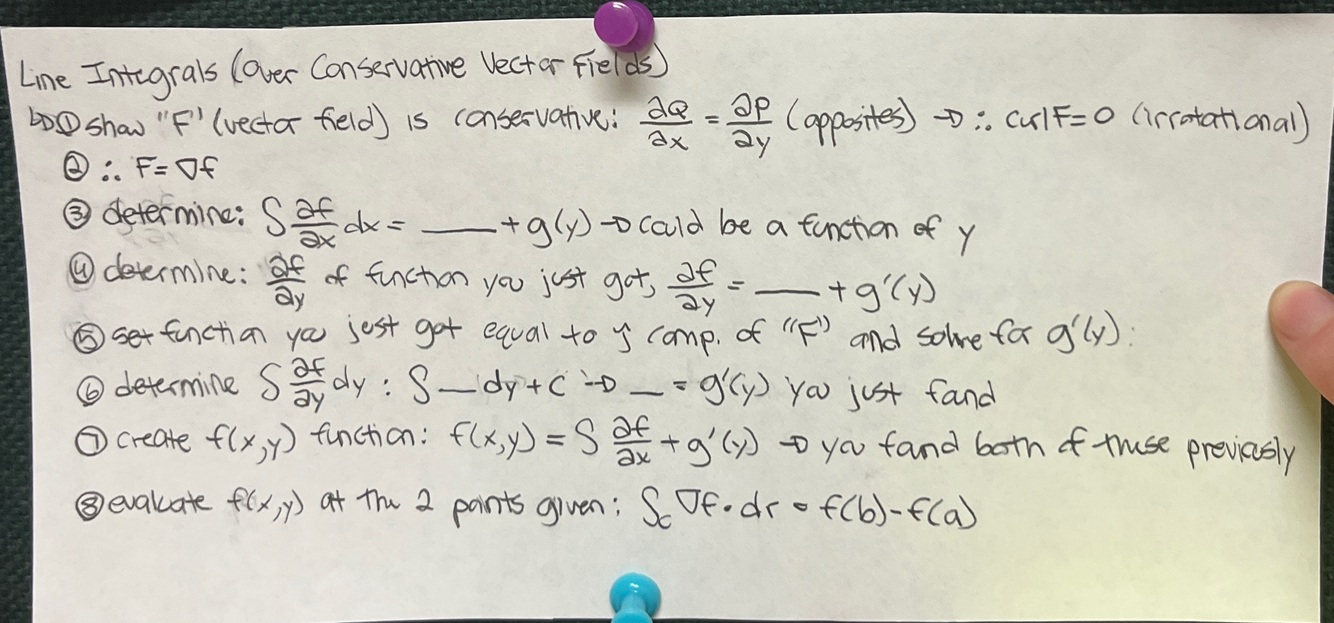 Line Integrals (Over Conservative Vector Fields)
↳① show "F" (vector field) is conservative: ∂Q/∂x = ∂P/∂y (opposites) → ∴ curl F = 0 (irrotational)
② ∴ F = ∇f
③ determine: ∫ ∂f/∂x dx = ___ + g(y) → could be a function of y
④ determine: ∂f/∂y of function you just got, ∂f/∂y = ___ + g'(y)
⑤ set function you just got equal to y comp. of "F" and solve for g'(y).
⑥ determine ∫ ∂f/∂y dy : ∫ __ dy + C → __ = g'(y) you just found
⑦ create f(x,y) function: f(x,y) = ∫ ∂f/∂x + g'(y) → you found both of these previously
⑧ evaluate f(x,y) at the 2 points given: ∫c ∇f · dr = f(b) - f(a)